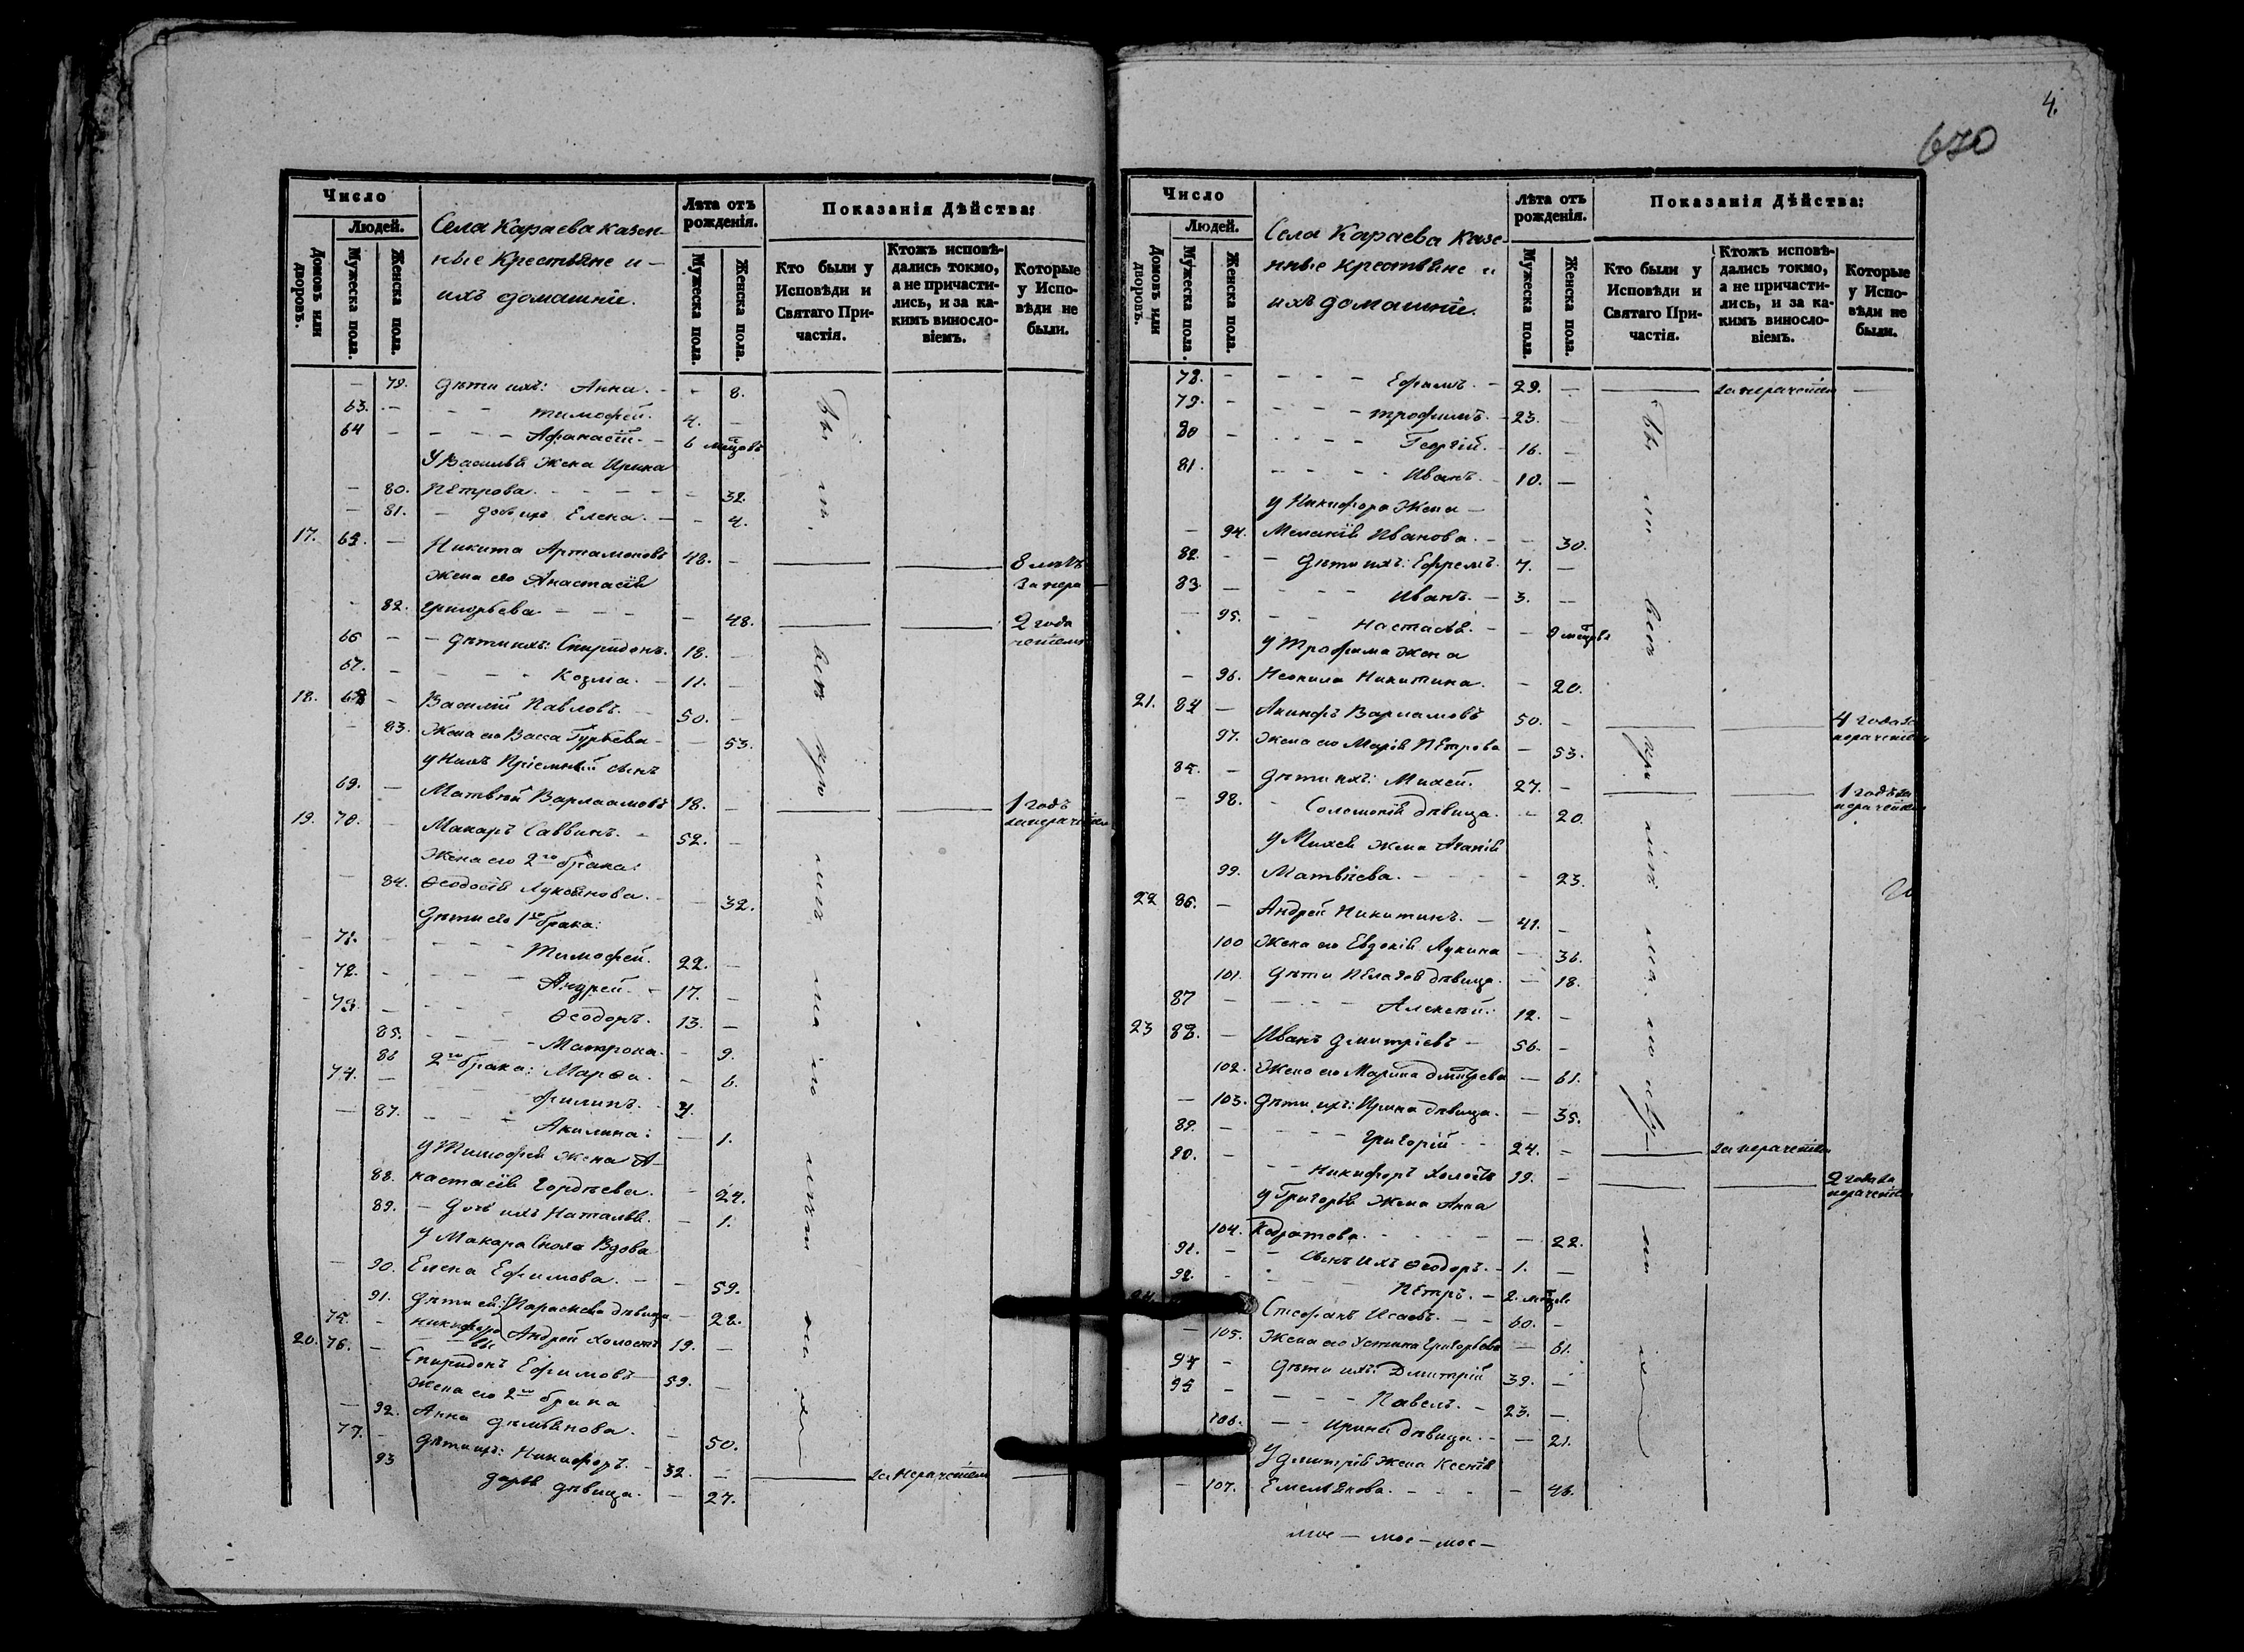 Число
Людей.
Домовъ или дворовъ.
Мужеска пола.
Женска пола.
Села Караева казен-
ные крестьяне и -
ихъ домашніе.
Лѣта отъ рожденія.
Мужеска пола.
Женска пола.
Показанія Дѣйства:
Кто были у Исповѣди и Святаго Причастія.
Ктожъ исповѣдались токмо, а не причастились, и за какимъ винословіемъ.
Которые у Исповѣди не были.
- 79. дѣти ихъ: Анна. - - 8.
63. - - - Тимофей. 4. -
64 - - - - Афанасій. - 6 мѣцовъ
У Василья жена Ирина
- 80. Петрова. - - - - - 32.
- 81. - дочь ихъ Елена. - - 4.
17. 65. - Никита Артамоновъ 48. - 8 лѣтъ
жена его Анастасія За нера
- 82. Григорьева - - - - 48. 2 года
66 - - дѣти ихъ: Спиридонъ. 18. - ченіемъ
67. - - - - Козма. - 11. -
18. 68 - Василій Павловъ. - 50. -
- 83. Жена его Васса Гурьева - - 53.
у нихъ Пріемный сынъ
69. - Матвѣй Варлаамовъ 18. - 1 годъ
19. 70. - Макаръ Саввинъ. - 52. - за нераченіемъ
Жена его 2го брака:
- 84. Ѳеодосія Лукоянова. - - 32.
Дѣти его 1го брака:
- 71. - - - - Тимофей. 22. -
- 72. - - - - Андрей. - 17. -
- 73. - - - - Ѳеодоръ. 13. -
85. - - - - Матрона. - 9.
86 2го брака: Марѳа. - 6.
74. - - - Филипъ. - 4.
- 87. - - - Акилина: - 1.
У Тимофея жена А-
88. настасія Гордѣева. - 24.
89. - Дочь ихъ Наталья. - 1.
У Макара Сноха Вдова
- 90. Елена Ефимова. - - 59.
91. дѣти ей: Параскева дѣвица - 22.
75. - Андрей холостъ 19. -
20. 76. - Спиридонъ Ефимовъ 59. -
Жена его 2го брака
- 92. Анна Демьянова. - 50.
77. - Дѣти ихъ: Никифоръ. - 32. - за нераченіемъ
93 дарья дѣвица. - 27.
Бы
ли.
всѣ
при
4.
670
Число
Людей.
Домовъ или дворовъ.
Мужеска пола.
Женска пола.
Села Караева Казе-
нные крестьяне и
ихъ домашніе.
Лѣта отъ рожденія.
Мужеска пола.
Женска пола.
Показанія Дѣйства:
Кто были у Исповѣди и Святаго Причастія.
Ктожъ исповѣдались токмо, а не причастились, и за какимъ винословіемъ.
Которые у Исповѣди не были.
78. - - - - Ефимъ. - 29. - за нераченіем -
79. - - - - Трофимъ. - 23. -
80 - - - - Георгій. - 16. -
81. - - - - Иванъ. - 10. -
у Никифора Жена -
- 94. Меланія Иванова. - - 30.
82. - - Дѣти ихъ: Ефремъ. 7. -
83. - - - - Иванъ. - 3. -
95. - - Настасья. - - 9 мѣцовъ
у Трофима жена
- 96. Неонила Никитина. - 20.
21. 84 - Акинфъ Варламовъ 50. - 4 года за
97. Жена его Марія Петрова - 53. нераченіем
85. - Дѣти ихъ: Михей. 27. - 1 годъ за
- 98. - Соломонія дѣвица. - 20. нераченіем
У Михея жена Агапія
99. Матвѣева. - - - - 23.
22 86. - Андрей Никитинъ. - 41. -
100 Жена его Евдокія Лукина - 36.
101. Дѣти Пелагея дѣвица. - 18.
87 - - - - Алексѣй. 12. -
23 88. - Иванъ Дмитріевъ - 56. -
102. Жена его Марина Дмитрева - 61.
- 103. Дѣти ихъ: Ирина дѣвица. - 35.
89. - - - - Григорій - - 24. - за нераченіем
90. - - - Никифоръ холостъ 19. - 2 года за
у Григорья жена Анна нераченіем
104. Кодратова. - - - - 22.
91. - - Сынъ ихъ Ѳеодоръ. - 1. -
92. - - - Петръ. - 2. мѣцовъ
24 Стефанъ Исаевъ. - - 60. -
- 105. Жена его Устина Григорьева - 61.
94 - Дѣти ихъ: Дмитрій 39. -
95 - - - - Павелъ. - 23. -
106. - - Ирина дѣвица. - - 21.
У Дмитрія жена Ксенія
- 107. Емельянова. - - - - 46.
Бы
ли
всѣ
при